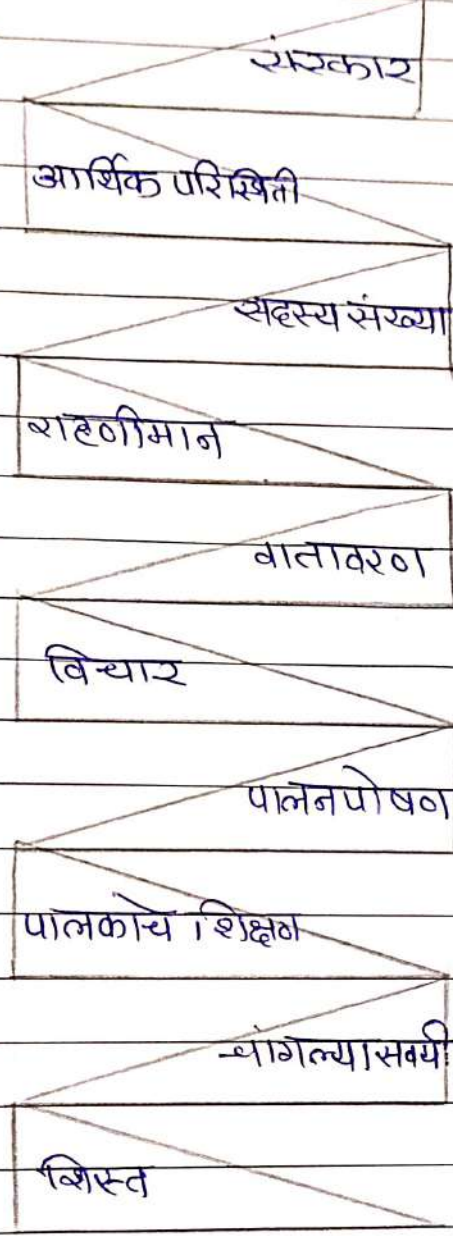 संस्कार
आर्थिक परिस्थिती
सदस्य संख्या
राहणीमान
वातावरण
विचार
पालनपोषण
पालकाचे शिक्षण
चांगल्या सवयी
शिस्त